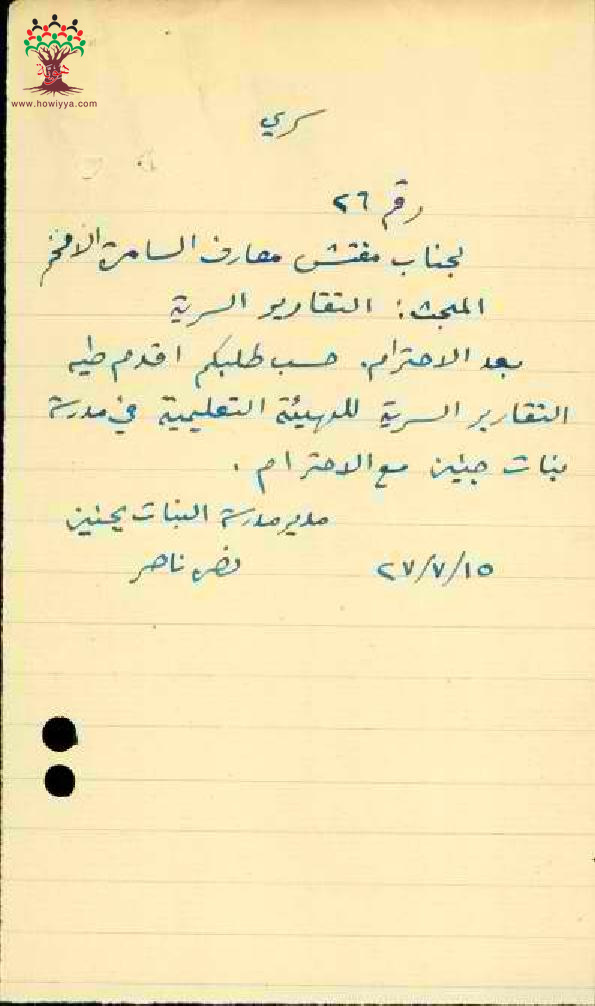 www.howiyya.com
سري
رقم ٢٦
لجناب مفتش معارف السامرة الافخم
المبحث: التقارير السرية
بعد الاحترام. حسب طلبكم اقدم طيه
التقارير السرية للهيئة التعليمية في مدرسة
بنات جنين مع الاحترام.
مدير مدرسة البنات بجنين
٢٧/٧/١٥ ناصر